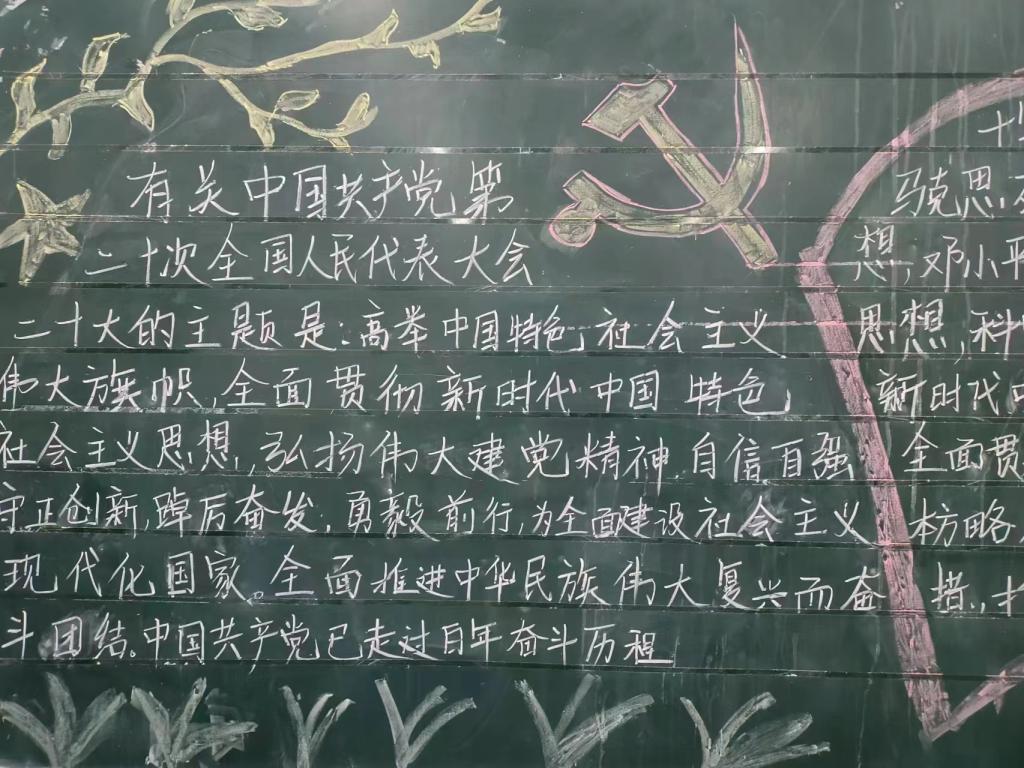 有关中国共产党第
二十次全国人民代表大会
二十大的主题是:高举中国特色社会主义
伟大旗帜,全面贯彻新时代中国特色
社会主义思想,弘扬伟大建党精神自信百强
守正创新,踔厉奋发,勇毅前行,为全面建设社会主义
现代化国家。全面推进中华民族伟大复兴而奋
斗团结。中国共产党已走过百年奋斗历程
马克思
想,邓小平
思想,科
新时代
全面贯
枋略
措,